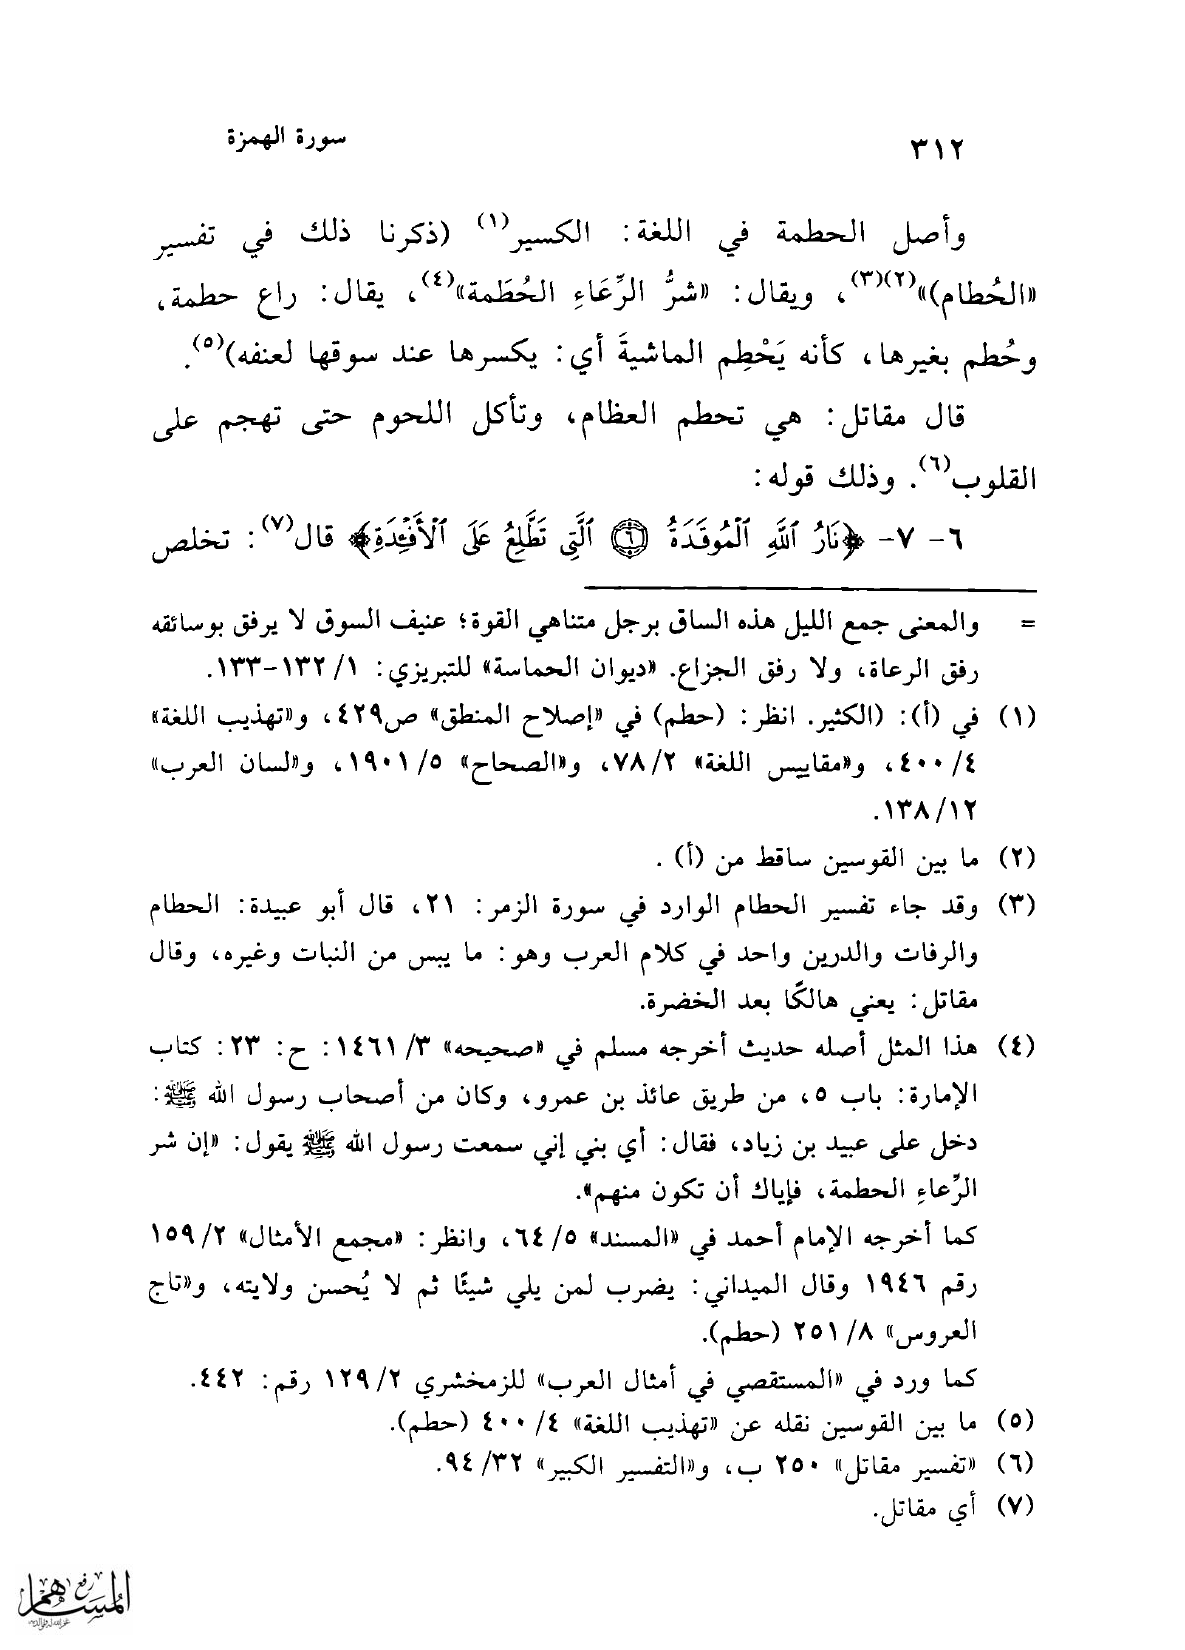 ٣١٢
سورة الهمزة
وأصل الحطمة في اللغة: الكسير(١) (ذكرنا ذلك في تفسير
«الحُطام)»(٢)(٣)، ويقال: «شرُّ الرِّعَاءِ الحُطَمة»(٤)، يقال: راع حطمة،
وحُطم بغيرها، كأنه يَحْطِم الماشيةَ أي: يكسرها عند سوقها لعنفه)(٥).
قال مقاتل: هي تحطم العظام، وتأكل اللحوم حتى تهجم على
القلوب(٦). وذلك قوله:
٦- ٧- ﴿نَارُ ٱللَّهِ ٱلْمُوقَدَةُ ۝٦ ٱلَّتِي تَطَّلِعُ عَلَى ٱلْأَفْـِٔدَةِ﴾ قال(٧): تخلص
= والمعنى جمع الليل هذه الساق برجل متناهي القوة؛ عنيف السوق لا يرفق بوسائقه
رفق الرعاة، ولا رفق الجزاع. «ديوان الحماسة» للتبريزي: ١/ ١٣٢-١٣٣.
(١) في (أ): (الكثير. انظر: (حطم) في «إصلاح المنطق» ص٤٢٩، و«تهذيب اللغة»
٤/ ٤٠٠، و«مقاييس اللغة» ٢/ ٧٨، و«الصحاح» ٥/ ١٩٠١، و«لسان العرب»
١٢/ ١٣٨.
(٢) ما بين القوسين ساقط من (أ) .
(٣) وقد جاء تفسير الحطام الوارد في سورة الزمر: ٢١، قال أبو عبيدة: الحطام
والرفات والدرين واحد في كلام العرب وهو: ما يبس من النبات وغيره، وقال
مقاتل: يعني هالكًا بعد الخضرة.
(٤) هذا المثل أصله حديث أخرجه مسلم في «صحيحه» ٣/ ١٤٦١: ح: ٢٣: كتاب
الإمارة: باب ٥، من طريق عائذ بن عمرو، وكان من أصحاب رسول الله ﷺ:
دخل على عبيد بن زياد، فقال: أي بني إني سمعت رسول الله ﷺ يقول: «إن شر
الرِّعاءِ الحطمة، فإياك أن تكون منهم».
كما أخرجه الإمام أحمد في «المسند» ٥/ ٦٤، وانظر: «مجمع الأمثال» ٢/ ١٥٩
رقم ١٩٤٦ وقال الميداني: يضرب لمن يلي شيئًا ثم لا يُحسن ولايته، و«تاج
العروس» ٨/ ٢٥١ (حطم).
كما ورد في «المستقصي في أمثال العرب» للزمخشري ٢/ ١٢٩ رقم: ٤٤٢.
(٥) ما بين القوسين نقله عن «تهذيب اللغة» ٤/ ٤٠٠ (حطم).
(٦) «تفسير مقاتل» ٢٥٠ ب، و«التفسير الكبير» ٣٢/ ٩٤.
(٧) أي مقاتل.
رفع
المساهم